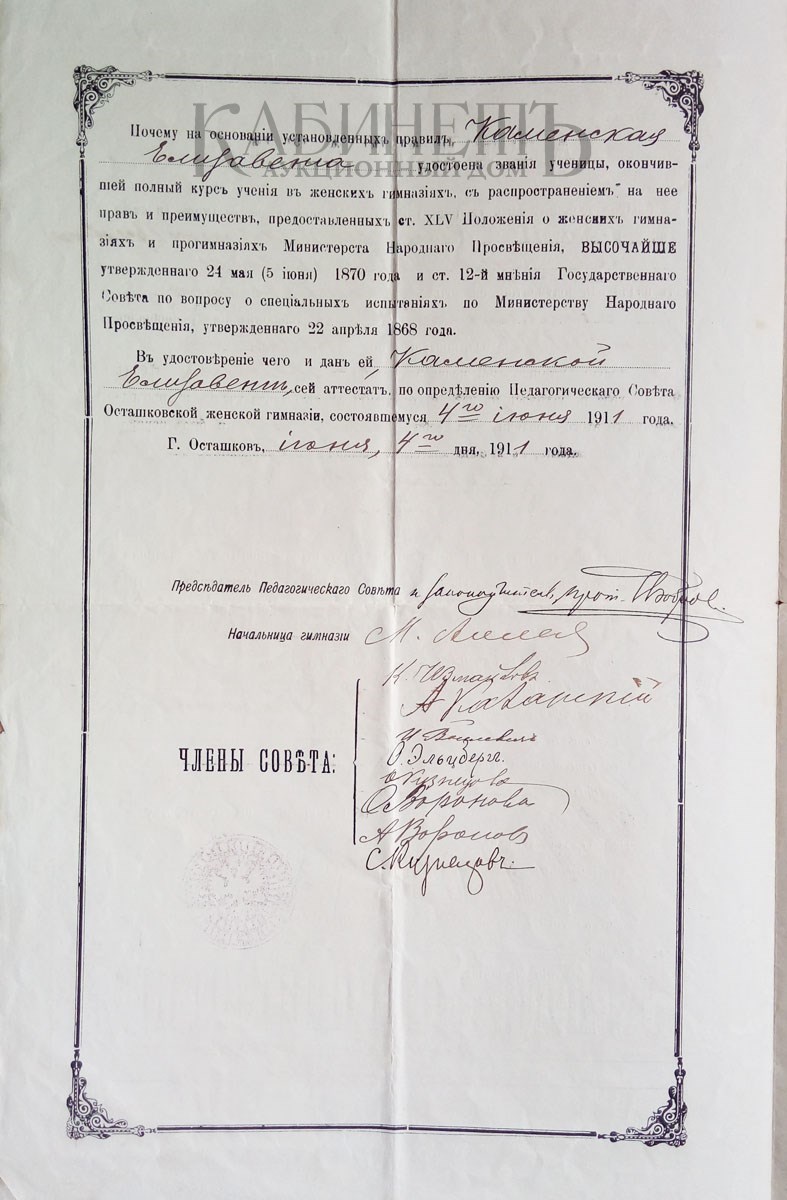 КАБИНЕТЪ
АУКЦИОННЫЙ ДОМ
Почему на основаніи установленныхъ правилъ, Каменская
Елизавета удостоена званія ученицы, окончив-
шей полный курсъ ученія въ женскихъ гимназіяхъ, съ распространеніемъ на нее
правъ и преимуществъ, предоставленныхъ ст. XLV Положенія о женскихъ гимна-
зіяхъ и прогимназіяхъ Министерста Народнаго Просвѣщенія, ВЫСОЧАЙШЕ
утвержденнаго 24 мая (5 іюня) 1870 года и ст. 12-й мнѣнія Государственнаго
Совѣта по вопросу о спеціальныхъ испытаніяхъ по Министерству Народнаго
Просвѣщенія, утвержденнаго 22 апрѣля 1868 года.
Въ удостовѣреніе чего и данъ ей, Каменской
Елизаветѣ, сей аттестатъ, по опредѣленію Педагогическаго Совѣта
Осташковской женской гимназіи, состоявшемуся 4го іюня 1911 года.
Г. Осташковъ, іюня, 4го дня, 1911 года.
Предсѣдатель Педагогическаго Совѣта и законоучитель, прот. Бобров
Начальница гимназіи М.
К. Измайловъ
А Казанскій
ЧЛЕНЫ СОВѢТА:
О. Эльцбергъ
О Кузнецова
О. Воронова
А Воронов
С Кузнецовъ.